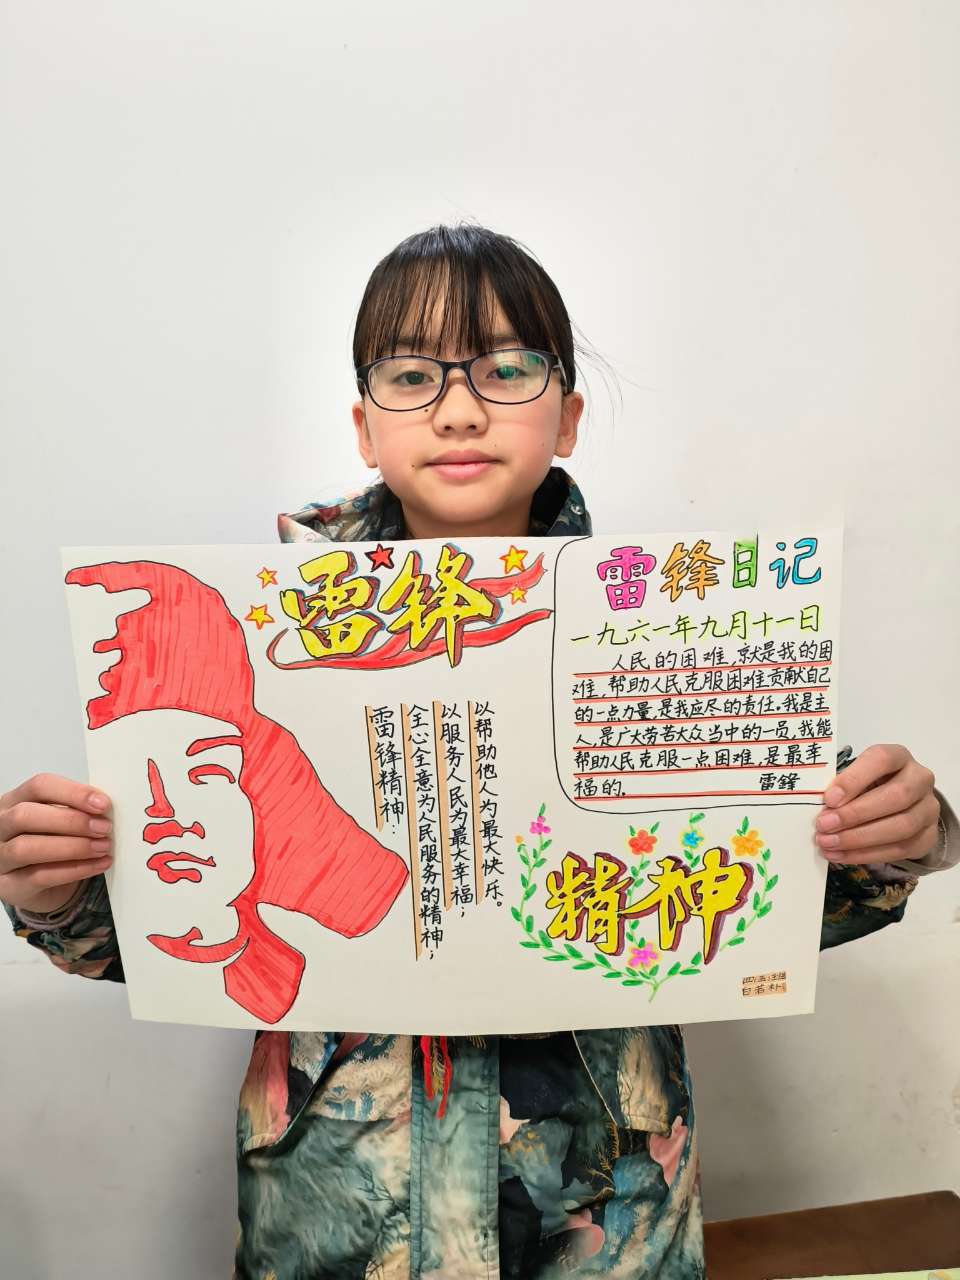 雷锋
雷锋日记
一九六一年九月十一日
人民的困难,就是我的困
难,帮助人民克服困难贡献自己
的一点力量,是我应尽的责任。我是主
人,是广大劳苦大众当中的一员,我能
帮助人民克服一点困难,是最幸
福的.
雷鋒
以帮助他人为最大快乐。
以服务人民为最大幸福;
全心全意为人民服务的精神;
雷锋精神:
精神